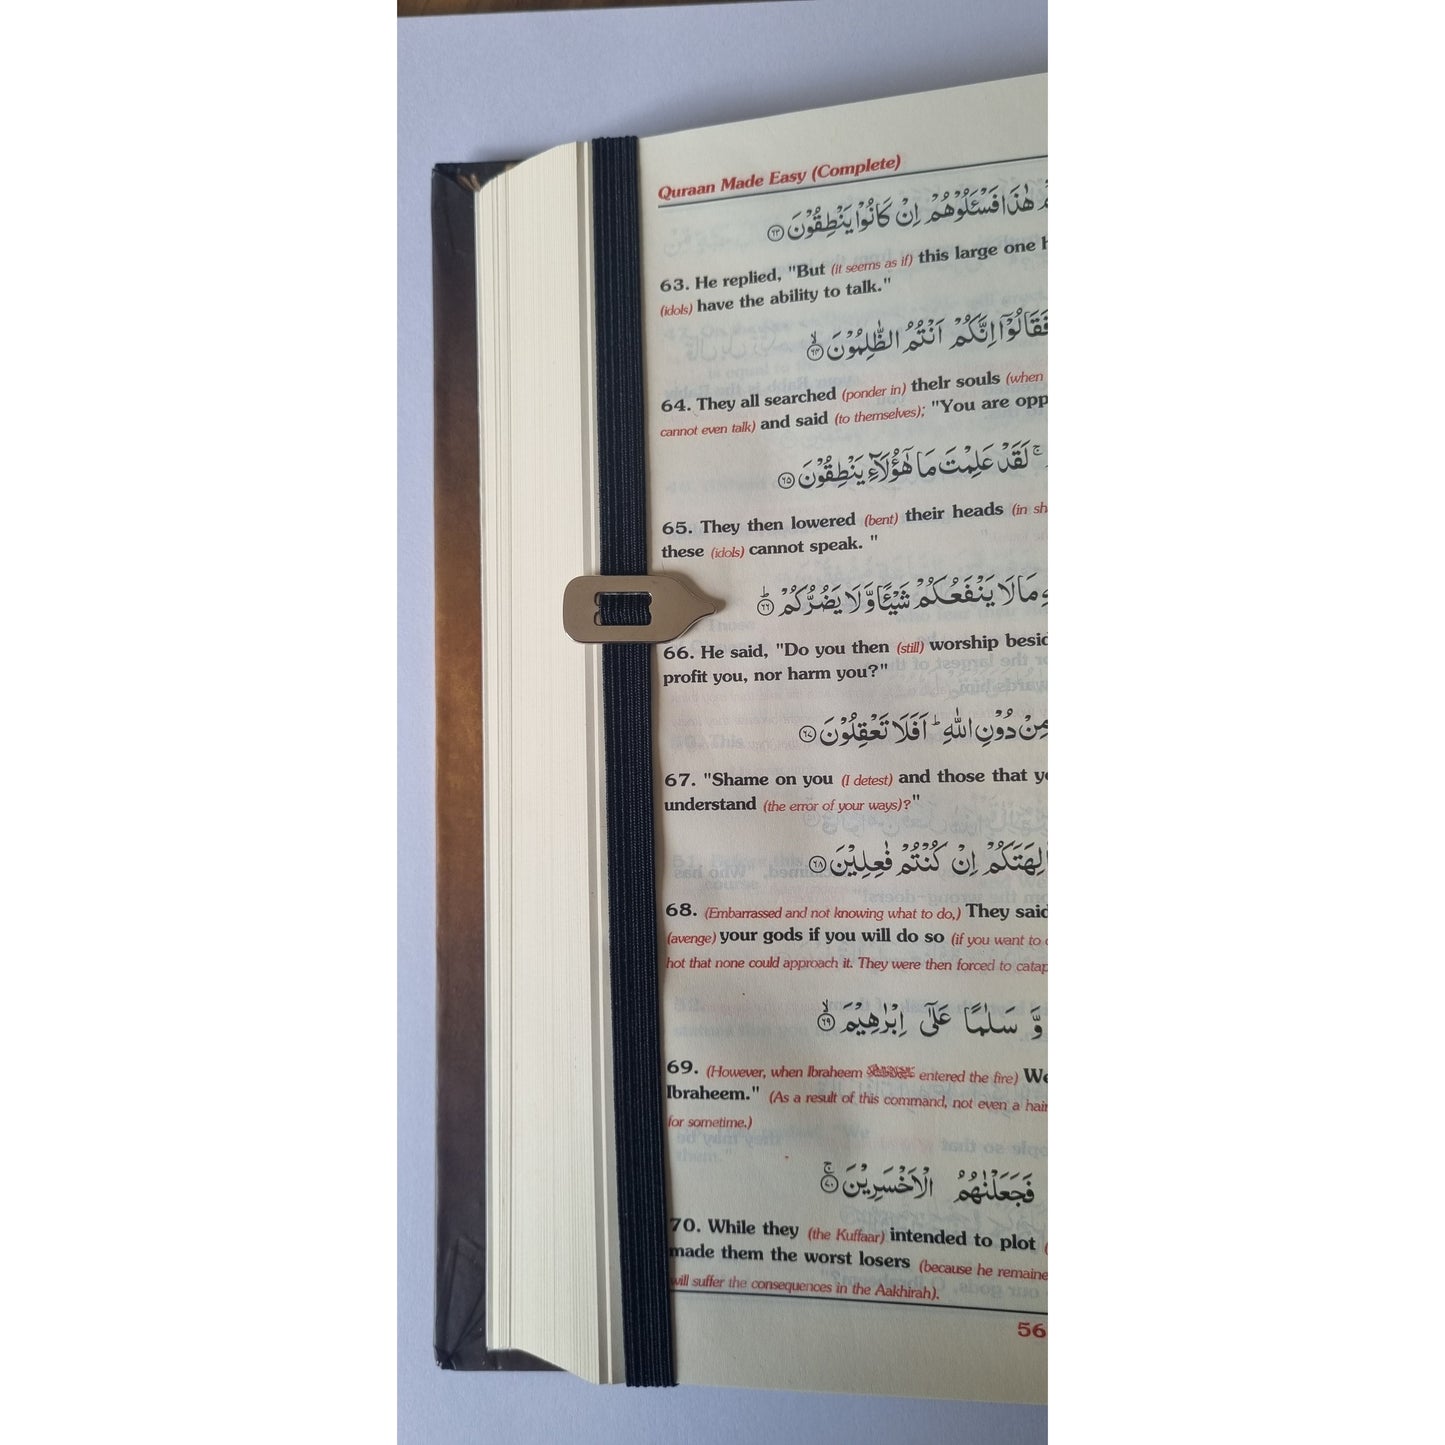 Quraan Made Easy (Complete)
هٰذَا فَسْـَٔلُوْهُمْ اِنْ كَانُوْا يَنْطِقُوْنَ ﴿٦٣﴾
63. He replied, "But (it seems as if) this large one
(idols) have the ability to talk."
فَقَالُوْٓا اِنَّكُمْ اَنْتُمُ الظّٰلِمُوْنَ ۙ
64. They all searched (ponder in) theIr souls (when
cannot even talk) and said (to themselves); "You are opp
ۚ لَقَدْ عَلِمْتَ مَا هٰٓؤُلَآءِ يَنْطِقُوْنَ ﴿٦٥﴾
65. They then lowered (bent) their heads (in sh
these (idols) cannot speak. "
مَا لَا يَنْفَعُكُمْ شَيْـًٔا وَّلَا يَضُرُّكُمْ ؕ ﴿٦٦﴾
66. He said, "Do you then (still) worship besid
profit you, nor harm you?"
مِنْ دُوْنِ اللّٰهِ ؕ اَفَلَا تَعْقِلُوْنَ ﴿٦٧﴾
67. "Shame on you (I detest) and those that y
understand (the error of your ways)?"
اٰلِهَتَكُمْ اِنْ كُنْتُمْ فٰعِلِيْنَ ﴿٦٨﴾
68. (Embarrassed and not knowing what to do,) They said
(avenge) your gods if you will do so (if you want to
hot that none could approach it. They were then forced to catap
وَّ سَلٰمًا عَلٰٓى اِبْرٰهِيْمَ ۙ ﴿٦٩﴾
69. (However, when Ibraheem entered the fire) We
Ibraheem." (As a result of this command, not even a hair
for sometime.)
فَجَعَلْنٰهُمُ الْاَخْسَرِيْنَ ۚ ﴿٧٠﴾
70. While they (the Kuffaar) intended to plot
made them the worst losers (because he remaine
will suffer the consequences in the Aakhirah).
56